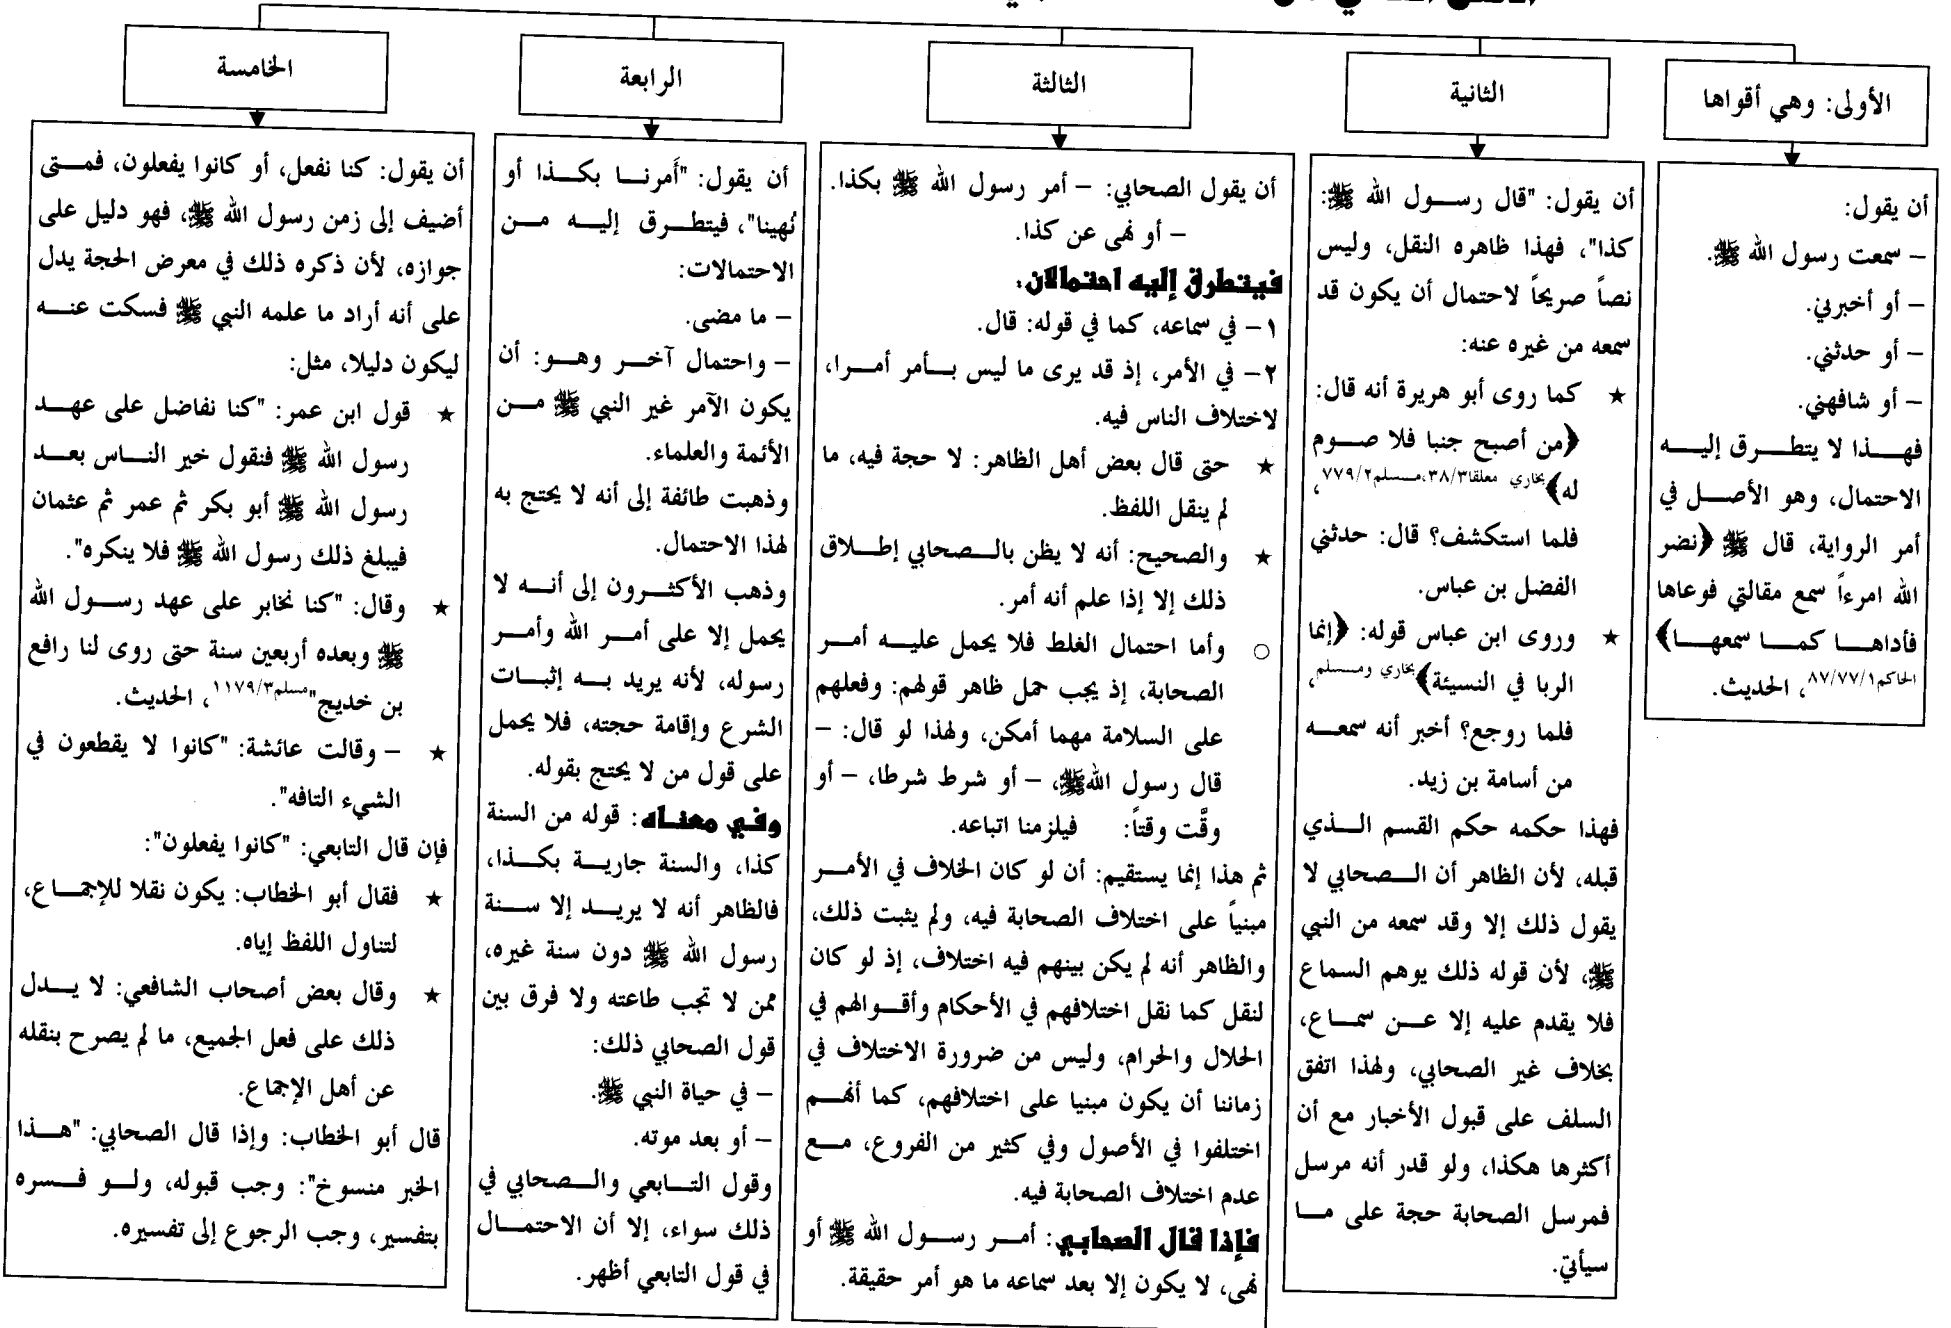 الأولى: وهي أقواها
أن يقول:
– سمعت رسول الله ﷺ.
– أو أخبرني.
– أو حدثني.
– أو شافهني.
فهذا لا يتطرق إليه
الاحتمال، وهو الأصل في
أمر الرواية، قال ﷺ ﴿نضر
الله امرءاً سمع مقالتي فوعاها
فأداها كما سمعها﴾
الحاكم٨٧/٧٧/١، الحديث.
الثانية
أن يقول: "قال رسول الله ﷺ:
كذا"، فهذا ظاهره النقل، وليس
نصاً صريحاً لاحتمال أن يكون قد
سمعه من غيره عنه:
★ كما روى أبو هريرة أنه قال:
﴿من أصبح جنبا فلا صوم
له﴾بخاري معلقا٣٨/٣،مسلم٧٧٩/٢،
فلما استكشف؟ قال: حدثني
الفضل بن عباس.
★ وروى ابن عباس قوله: ﴿إنما
الربا في النسيئة﴾بخاري ومسلم،
فلما روجع؟ أخبر أنه سمعه
من أسامة بن زيد.
فهذا حكمه حكم القسم الذي
قبله، لأن الظاهر أن الصحابي لا
يقول ذلك إلا وقد سمعه من النبي
ﷺ، لأن قوله ذلك يوهم السماع
فلا يقدم عليه إلا عن سماع،
بخلاف غير الصحابي، ولهذا اتفق
السلف على قبول الأخبار مع أن
أكثرها هكذا، ولو قدر أنه مرسل
فمرسل الصحابة حجة على ما
سيأتي.
الثالثة
أن يقول الصحابي: – أمر رسول الله ﷺ بكذا.
– أو نهى عن كذا.
فيتطرق إليه احتمالان:
١– في سماعه، كما في قوله: قال.
٢– في الأمر، إذ قد يرى ما ليس بأمر أمرا،
لاختلاف الناس فيه.
★ حتى قال بعض أهل الظاهر: لا حجة فيه، ما
لم ينقل اللفظ.
★ والصحيح: أنه لا يظن بالصحابي إطلاق
ذلك إلا إذا علم أنه أمر.
○ وأما احتمال الغلط فلا يحمل عليه أمر
الصحابة، إذ يجب حمل ظاهر قولهم: وفعلهم
على السلامة مهما أمكن، ولهذا لو قال: –
قال رسول اللهﷺ، – أو شرط شرطا، – أو
وقَّت وقتاً: فيلزمنا اتباعه.
ثم هذا إنما يستقيم: أن لو كان الخلاف في الأمر
مبنياً على اختلاف الصحابة فيه، ولم يثبت ذلك،
والظاهر أنه لم يكن بينهم فيه اختلاف، إذ لو كان
لنقل كما نقل اختلافهم في الأحكام وأقوالهم في
الحلال والحرام، وليس من ضرورة الاختلاف في
زماننا أن يكون مبنيا على اختلافهم، كما أنهم
اختلفوا في الأصول وفي كثير من الفروع، مع
عدم اختلاف الصحابة فيه.
فإذا قال الصحابي: أمر رسول الله ﷺ أو
نهى، لا يكون إلا بعد سماعه ما هو أمر حقيقة.
الرابعة
أن يقول: "أَمرنا بكذا أو
نُهينا"، فيتطرق إليه من
الاحتمالات:
– ما مضى.
– واحتمال آخر وهو: أن
يكون الآمر غير النبي ﷺ من
الأئمة والعلماء.
وذهبت طائفة إلى أنه لا يحتج به
لهذا الاحتمال.
وذهب الأكثرون إلى أنه لا
يحمل إلا على أمر الله وأمر
رسوله، لأنه يريد به إثبات
الشرع وإقامة حجته، فلا يحمل
على قول من لا يحتج بقوله.
وفي معناه: قوله من السنة
كذا، والسنة جارية بكذا،
فالظاهر أنه لا يريد إلا سنة
رسول الله ﷺ دون سنة غيره،
ممن لا تجب طاعته ولا فرق بين
قول الصحابي ذلك:
– في حياة النبي ﷺ.
– أو بعد موته.
وقول التابعي والصحابي في
ذلك سواء، إلا أن الاحتمال
في قول التابعي أظهر.
الخامسة
أن يقول: كنا نفعل، أو كانوا يفعلون، فمتى
أضيف إلى زمن رسول الله ﷺ، فهو دليل على
جوازه، لأن ذكره ذلك في معرض الحجة يدل
على أنه أراد ما علمه النبي ﷺ فسكت عنه
ليكون دليلا، مثل:
★ قول ابن عمر: "كنا نفاضل على عهد
رسول الله ﷺ فنقول خير الناس بعد
رسول الله ﷺ أبو بكر ثم عمر ثم عثمان
فيبلغ ذلك رسول الله ﷺ فلا ينكره".
★ وقال: "كنا نخابر على عهد رسول الله
ﷺ وبعده أربعين سنة حتى روى لنا رافع
بن خديج"مسلم١١٧٩/٣، الحديث.
★ – وقالت عائشة: "كانوا لا يقطعون في
الشيء التافه".
فإن قال التابعي: "كانوا يفعلون":
★ فقال أبو الخطاب: يكون نقلا للإجماع،
لتناول اللفظ إياه.
★ وقال بعض أصحاب الشافعي: لا يدل
ذلك على فعل الجميع، ما لم يصرح بنقله
عن أهل الإجماع.
قال أبو الخطاب: وإذا قال الصحابي: "هذا
الخبر منسوخ": وجب قبوله، ولو فسره
بتفسير، وجب الرجوع إلى تفسيره.